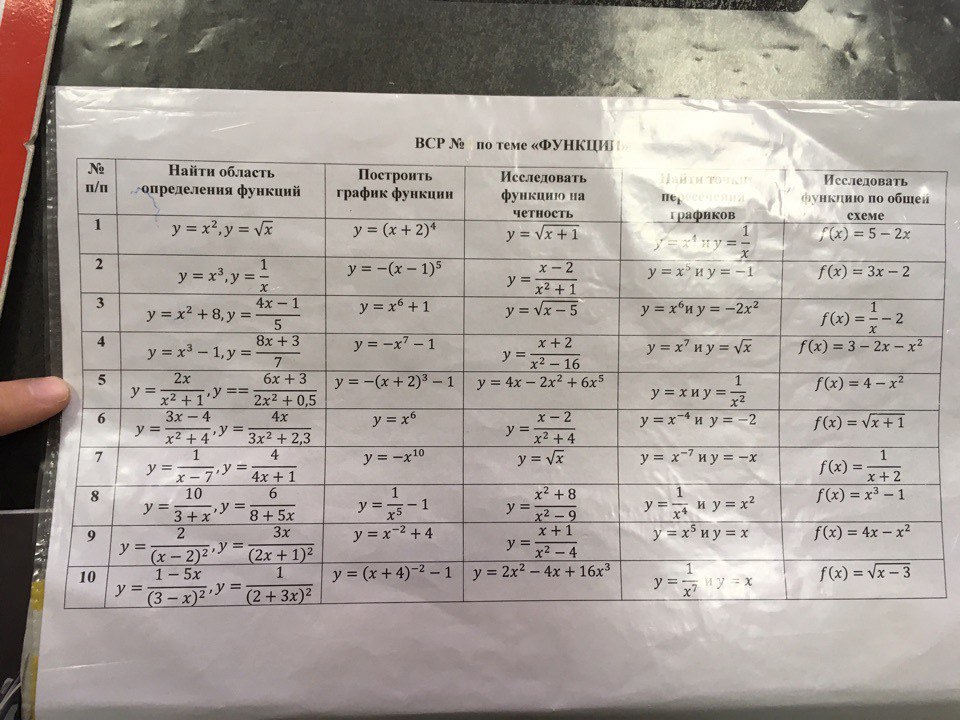 ВСР № по теме «ФУНКЦИИ»
№ п/п | Найти область определения функций | Построить график функции | Исследовать функцию на четность | Найти точки пересечения графиков | Исследовать функцию по общей схеме
1 | y = x², y = √x | y = (x + 2)⁴ | y = √(x + 1) | y = x⁴ и y = 1/x | f(x) = 5 − 2x
2 | y = x³, y = 1/x | y = −(x − 1)⁵ | y = (x − 2)/(x² + 1) | y = x⁵ и y = −1 | f(x) = 3x − 2
3 | y = x² + 8, y = (4x − 1)/5 | y = x⁶ + 1 | y = √(x − 5) | y = x⁶и y = −2x² | f(x) = 1/x − 2
4 | y = x³ − 1, y = (8x + 3)/7 | y = −x⁷ − 1 | y = (x + 2)/(x² − 16) | y = x⁷ и y = √x | f(x) = 3 − 2x − x²
5 | y = 2x/(x² + 1), y == (6x + 3)/(2x² + 0,5) | y = −(x + 2)³ − 1 | y = 4x − 2x² + 6x⁵ | y = x и y = 1/x² | f(x) = 4 − x²
6 | y = (3x − 4)/(x² + 4), y = 4x/(3x² + 2,3) | y = x⁶ | y = (x − 2)/(x² + 4) | y = x⁻⁴ и y = −2 | f(x) = √(x + 1)
7 | y = 1/(x − 7), y = 4/(4x + 1) | y = −x¹⁰ | y = √x | y = x⁻⁷ и y = −x | f(x) = 1/(x + 2)
8 | y = 10/(3 + x), y = 6/(8 + 5x) | y = 1/x⁵ − 1 | y = (x² + 8)/(x² − 9) | y = 1/x⁴ и y = x² | f(x) = x³ − 1
9 | y = 2/(x − 2)², y = 3x/(2x + 1)² | y = x⁻² + 4 | y = (x + 1)/(x² − 4) | y = x⁵ и y = x | f(x) = 4x − x²
10 | y = (1 − 5x)/(3 − x)², y = 1/(2 + 3x)² | y = (x + 4)⁻² − 1 | y = 2x² − 4x + 16x³ | y = 1/x⁷ и y = x | f(x) = √(x − 3)